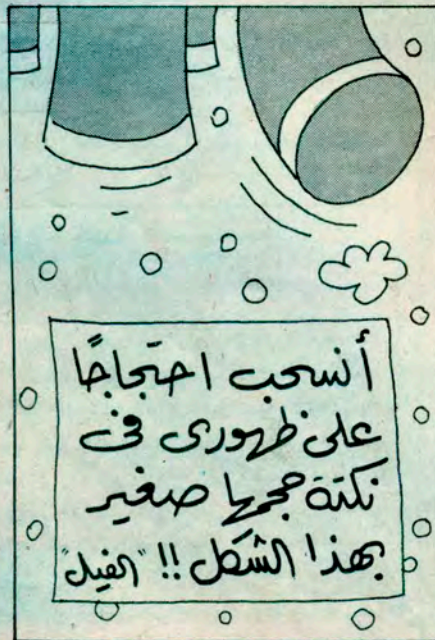 أنسحب احتجاجًا
على ظهورى فى
نكتة حجمها صغير
بهذا الشكل !! "الفيل"